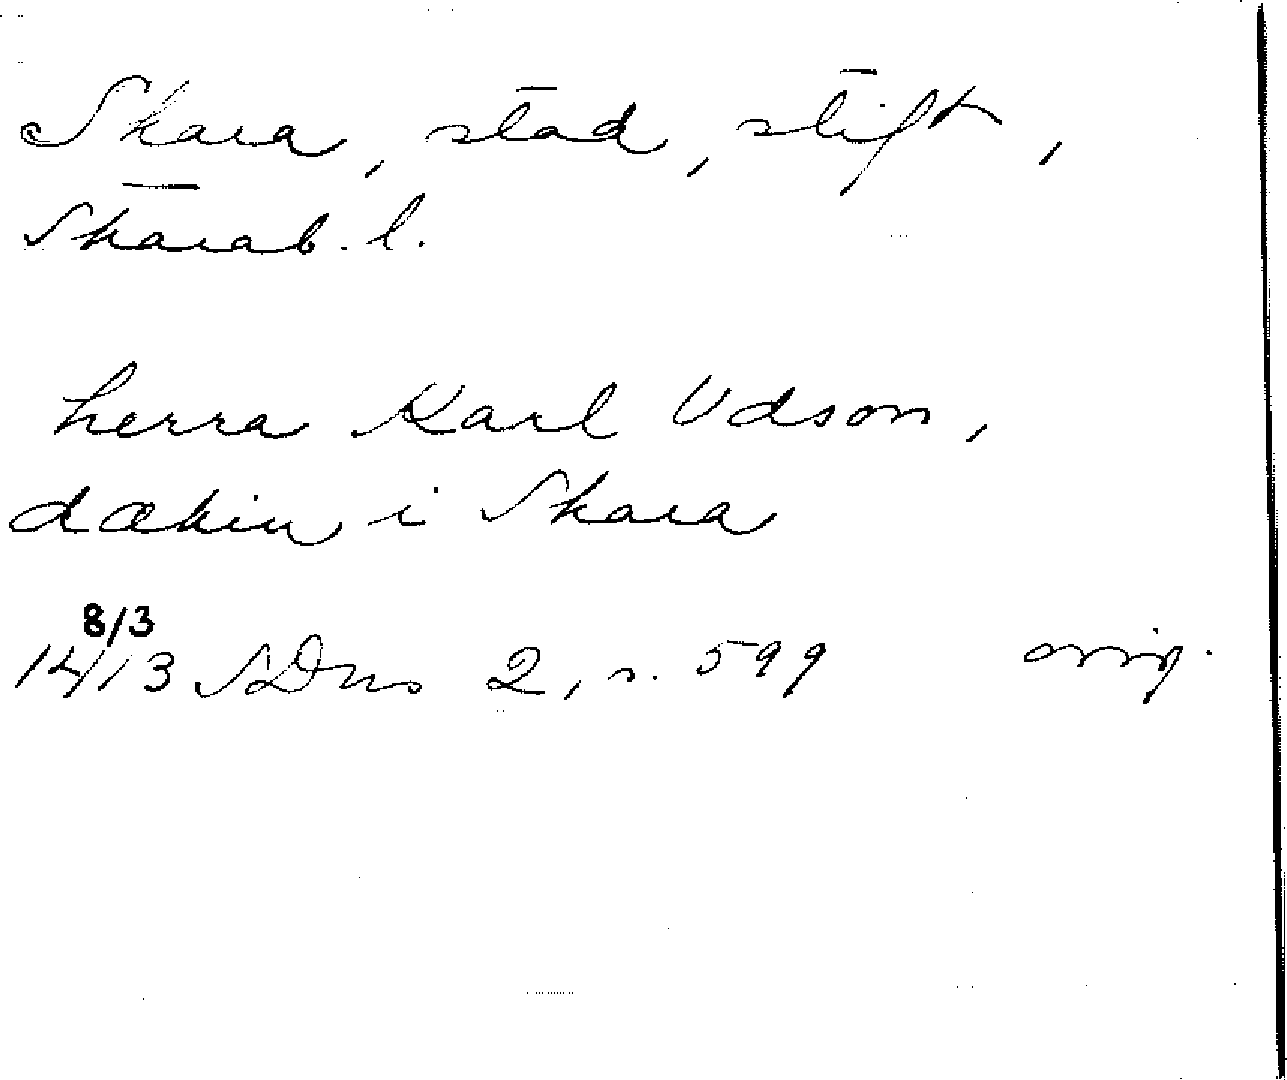 Skara, stad, stift,
Skarab. l.
herra Karl Udson,
dækin i Skara
8/3
1413 SDns 2, s. 599 orig.